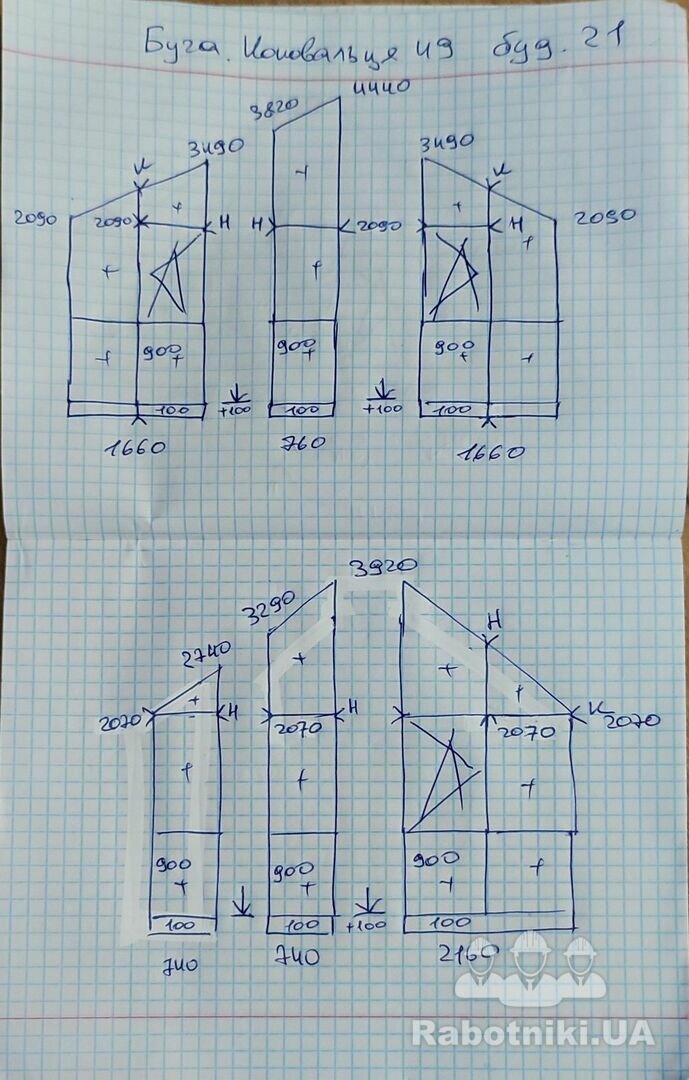 Буча. Коновальця 49 буд. 21
4440
3820
3490 3490
К К
2090 2090 Н Н 2090 Н 2090
900 900 900
100 +100 100 +100 100
1660 760 1660
3920
3290
2740 Н
2070 Н 2070 Н 2070 К 2070
900 900 900
100 100 +100 100
740 740 2160
Rabotniki.UA